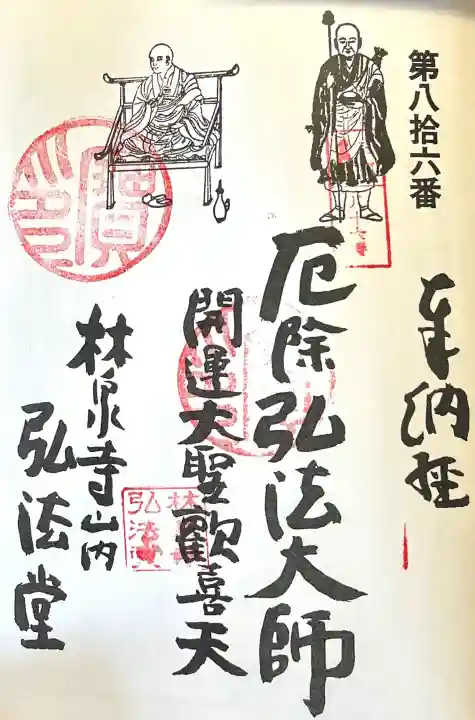 第八拾六番
奉納経
厄除弘法大師
開運大聖歓喜天
林泉寺山内
弘法堂